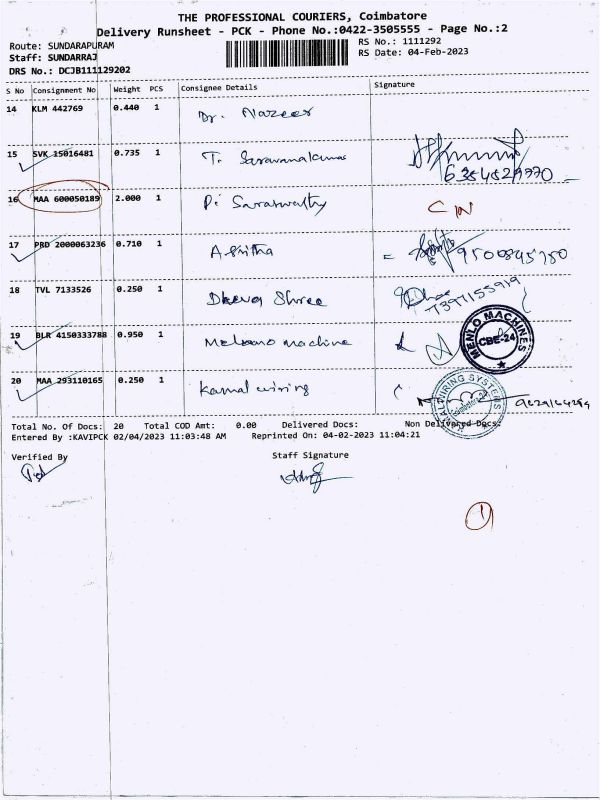 THE PROFESSIONAL COURIERS, Coimbatore
Delivery Runsheet - PCK - Phone No.:0422-3505555 - Page No.:2
Route: SUNDARAPURAM
RS No.: 1111292
Staff: SUNDARRAJ
RS Date: 04-Feb-2023
DRS No.: DCJB111129202
S No Consignment No Weight PCS Consignee Details Signature
14 KLM 442769 0.440 1 Dr. Nazeer
15 SVK 15016481 0.735 1 T. Saravanakumar 6354529770
16 MAA 600050189 2.000 1 P. Saraswathy CN
17 PRD 2000063236 0.710 1 Asritha 9500845750
18 TVL 7133526 0.250 1 Dheva Shree 7397155919
19 BLR 4150333788 0.950 1 machine MENLO MACHINES CBE-24
20 MAA 293110165 0.250 1 Kamal wiring WIRING SYSTEMS
Total No. Of Docs: 20 Total COD Amt: 0.00 Delivered Docs: Non Delivered Docs:
Entered By :KAVIPCK 02/04/2023 11:03:48 AM Reprinted On: 04-02-2023 11:04:21
Verified By Staff Signature
1